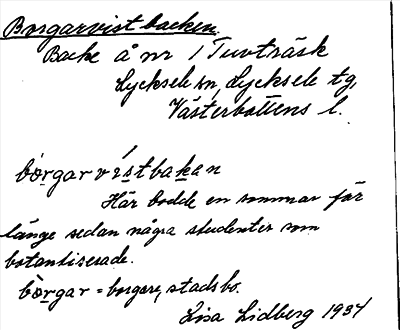 Borgarvistbacken.
Backe å nr 1 Tuvträsk
Lycksele sn, Lycksele tg,
Västerbottens l.
bòrgarvístbakan
Här bodde en sommar för
länge sedan några studenter som
botaniserade.
bòrgar = borgare, stadsbo.
Lisa Lidberg 1937